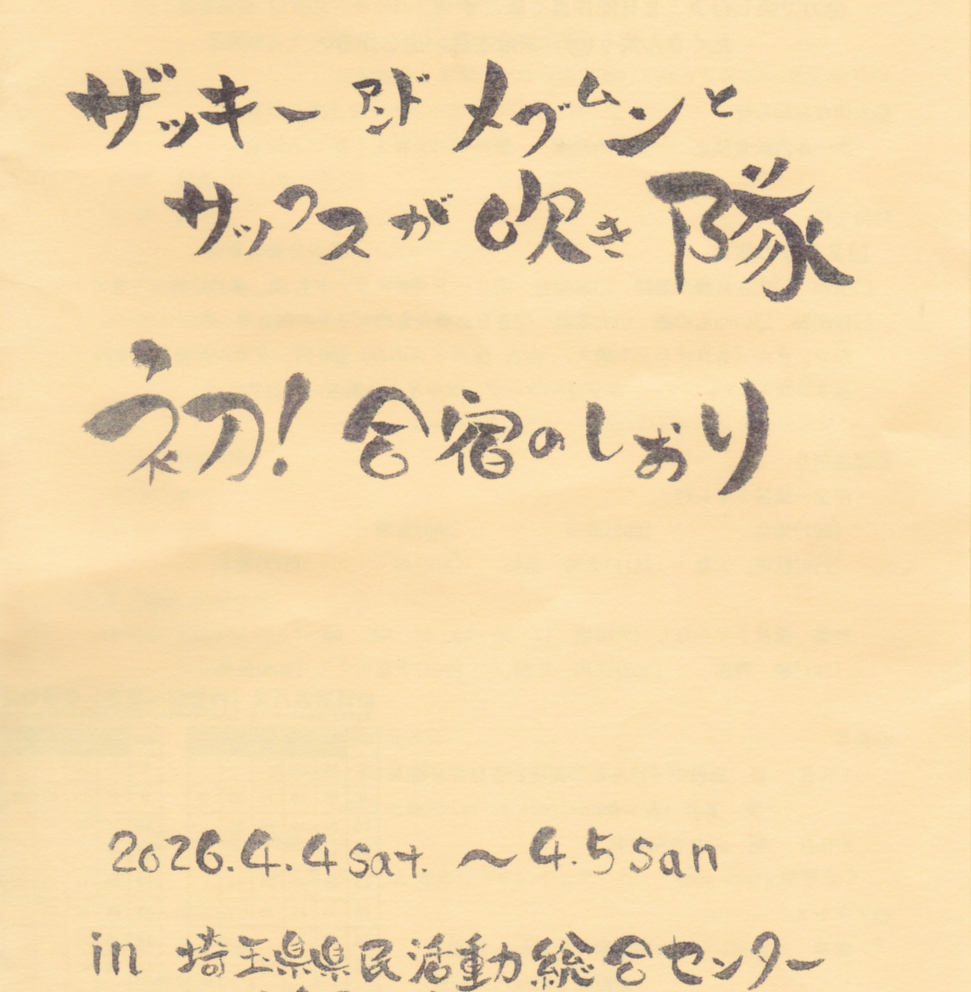 ザッキーアンドメブムンと
サックスが吹き隊
初!合宿のしおり
2026.4.4 sat. 〜4.5 san
in 埼玉県県民活動総合センター